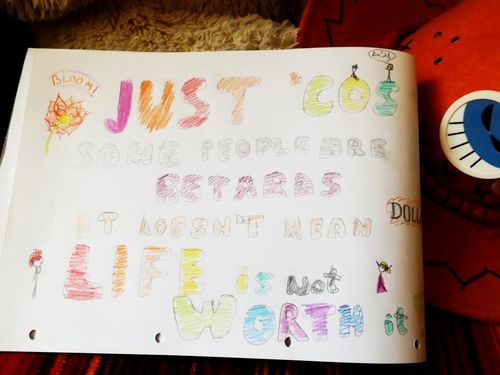 BLOOM!
JUST 'COS
SOME PEOPLE ARE
RETARDS
IT DOESN'T MEAN
DOLL
LIFE is Not
WORTH it